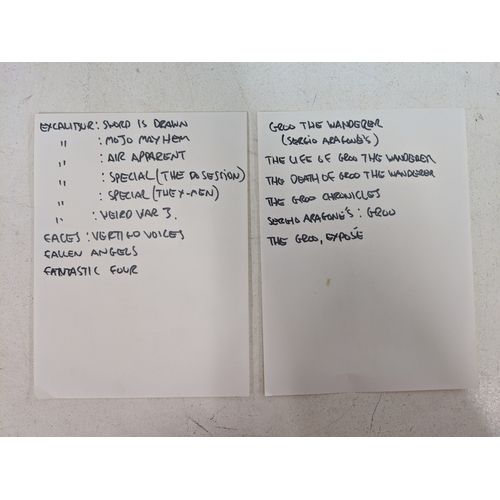 EXCALIBUR: SWORD IS DRAWN
" : MOJO MAYHEM
" : AIR APPARENT
" : SPECIAL (THE POSSESSION)
" : SPECIAL (THE X-MEN)
" : WEIRD WAR 3.
FACES: VERTIGO VOICES
FALLEN ANGELS
FANTASTIC FOUR
GROO THE WANDERER
(SERGIO ARAGONÉ'S)
THE LIFE OF GROO THE WANDERER
THE DEATH OF GROO THE WANDERER
THE GROO CHRONICLES
SERGIO ARAGONÉ'S: GROO
THE GROO, EXPOSÉ